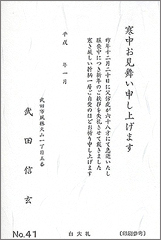 寒中お見舞い申し上げます
昨年十二月二十日に父信虎が六十八才にて急逝いたし
服喪中につき新年のご挨拶を失礼させて戴きました
寒さ厳しい折柄一層ご自愛のほどお祈り申し上げます
平成　年一月
武田市風林火山一丁目五番
武田信玄
No.41
白大礼
(印刷参考)